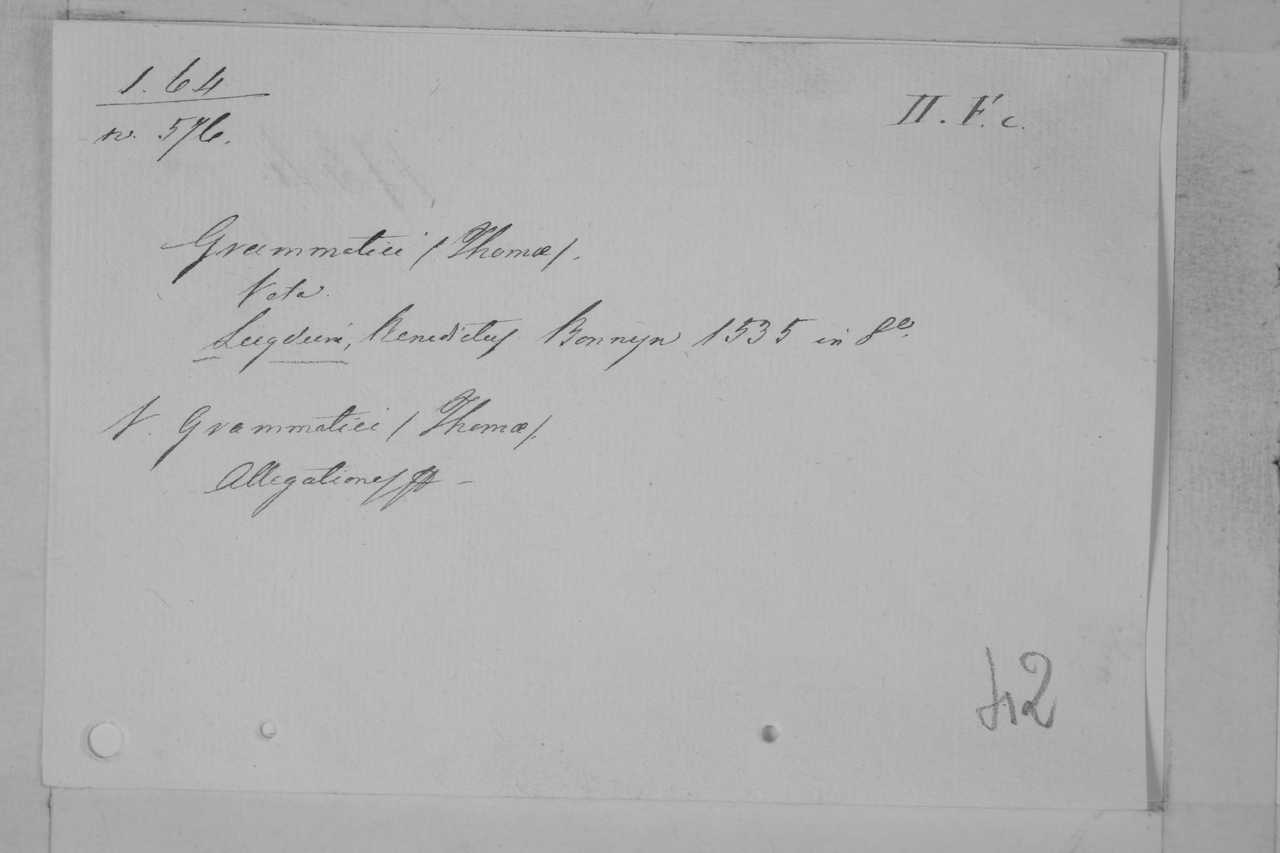 1. 64
n. 576.
II. F. c.
Grammatici / Thomæ /.
Vota.
Lugduni, Benedictus Bonnyn 1535 in 8º.
V. Grammatici / Thomæ /.
Allegationes
42